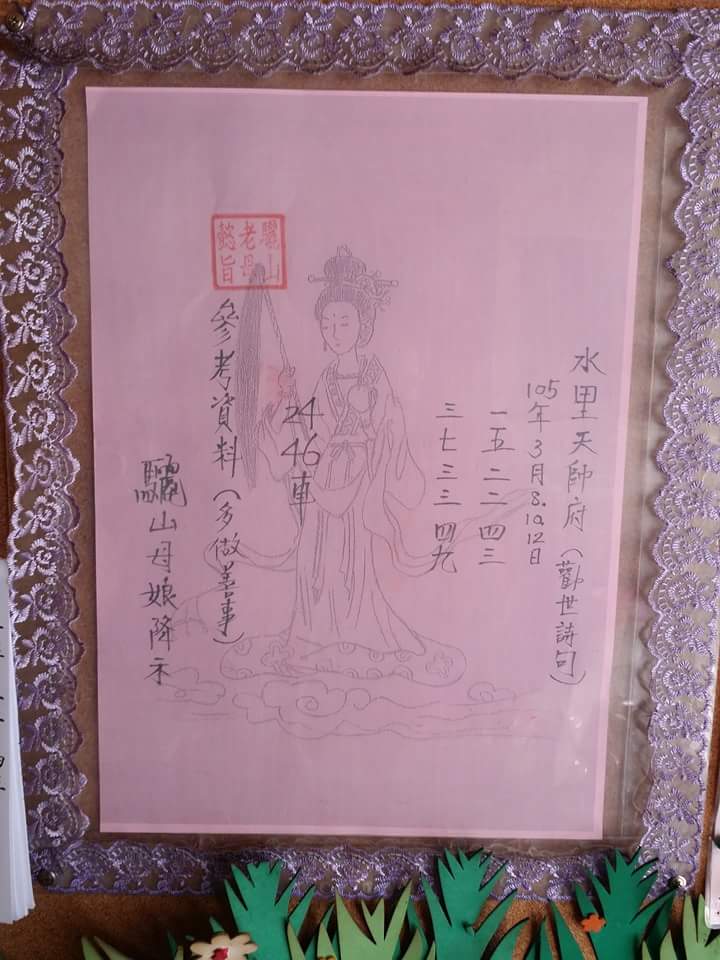 水里天師府（勸世詩句）
105年3月8.10.12日
一五 二二 四三
三七 三三 四九
24 46 車
參考資料（多做善事）
驪山母娘降示
驪山
老母
懿旨